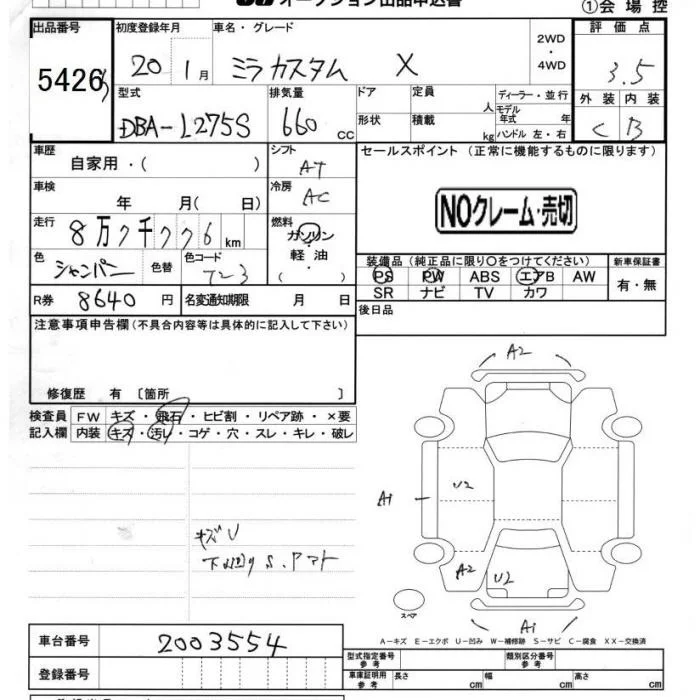 オークション出品申込書
①会場控
出品番号 初度登録年月 車名・グレード 2WD・4WD 評価点
5426 20 1月 ミラカスタム X 3.5
型式 排気量 ドア 定員 人 ディーラー・並行 外装 内装
DBA-L275S 660 CC 形状 積載 kg モデル年式 年 ハンドル 左・右 C B
車歴 自家用・( ) シフト AT セールスポイント (正常に機能するものに限ります)
車検 年 月( 日) 冷房 AC
NOクレーム・売切
走行 8万7千776km 燃料 ガソリン・軽油・( )
色 シャンパン 色替 色コード T-23
装備品 (純正品に限り○をつけてください) 新車保証書
PS PW ABS エアB AW 有・無
SR ナビ TV カワ
R券 8640円 名変通知期限 月 日
後日品
注意事項申告欄 (不具合内容等は具体的に記入して下さい)
修復歴 有 〔箇所 〕
検査員 FW キズ・飛石・ヒビ割・リペア跡・×要
記入欄 内装 キズ・汚レ・コゲ・穴・スレ・キレ・破レ
A2
A1
U2
A2
U2
A1
キズU
S.
スペア
A-キズ E-エクボ U-凹み W-補修跡 S-サビ C-腐食 XX-交換済
車台番号 2003554
型式指定番号 参考 類別区分番号 参考
登録番号
車庫証明用 参考 長さ cm 幅 cm 高さ cm